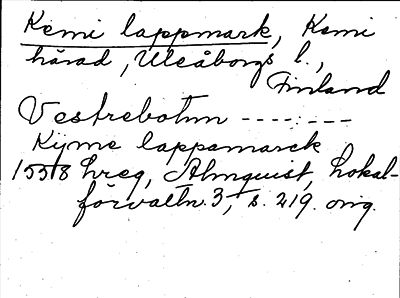 Kemi lappmark, Kemi
härad, Uleåborgs l.,
Finland
Vestrebotnn -------
Kyme lappamarck
1558 hreg, Almquist, Lokal-
förvaltn. 3, s. 219. orig.